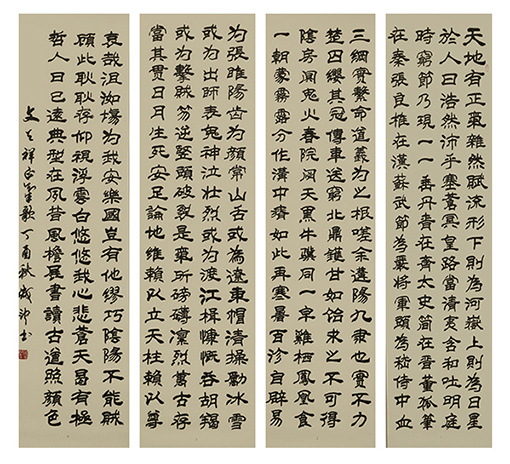 天地有正氣雜然賦流形下則為河嶽上則為日星
於人曰浩然沛乎塞蒼冥皇路當清夷含和吐明庭
時窮節乃現一一垂丹青在齊太史簡在晉董狐筆
在秦張良椎在漢蘇武節為嚴將軍頭為嵇侍中血
三綱實繫命道義為之根嗟余遘陽九隸也實不力
楚囚纓其冠傳車送窮北鼎鑊甘如飴求之不可得
陰房闃鬼火春院閟天黑牛驥同一皁雞栖鳳凰食
一朝蒙霧露分作溝中瘠如此再寒暑百沴自辟易
為張睢陽齒為顏常山舌或為遼東帽清操勵冰雪
或為出師表鬼神泣壯烈或為渡江楫慷慨吞胡羯
或為擊賊笏逆豎頭破裂是氣所磅礴凜烈萬古存
當其貫日月生死安足論地維賴以立天柱賴以尊
哀哉沮洳場為我安樂國豈有他繆巧陰陽不能賊
顧此耿耿存仰視浮雲白悠悠我心悲蒼天曷有極
哲人日已遠典型在夙昔風檐展書讀古道照顏色
文天祥正氣歌丁酉秋